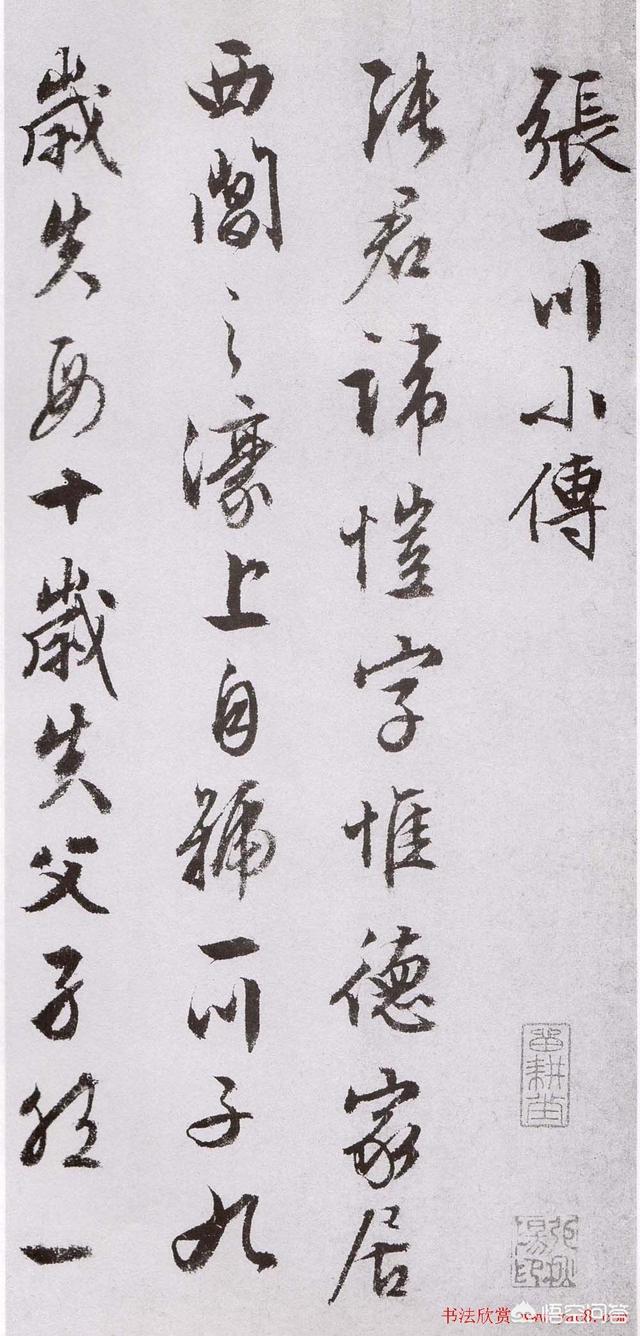 張一川小傳
張君諱愷字惟德家居
西閶之濠上自號一川子九
歲失母十歲失父孑然一
留耕堂
书法欣赏
悟空问答